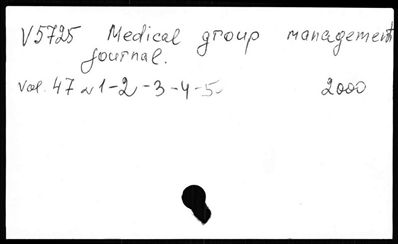 V5725 Medical group management
journal.
Vol. 47 N 1-2-3-4-5- 2000